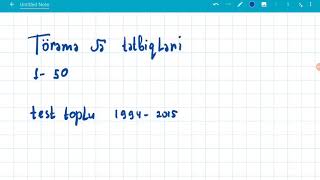 Untitled Note
Törəmə və tətbiqləri
1-50
test toplu 1994-2015